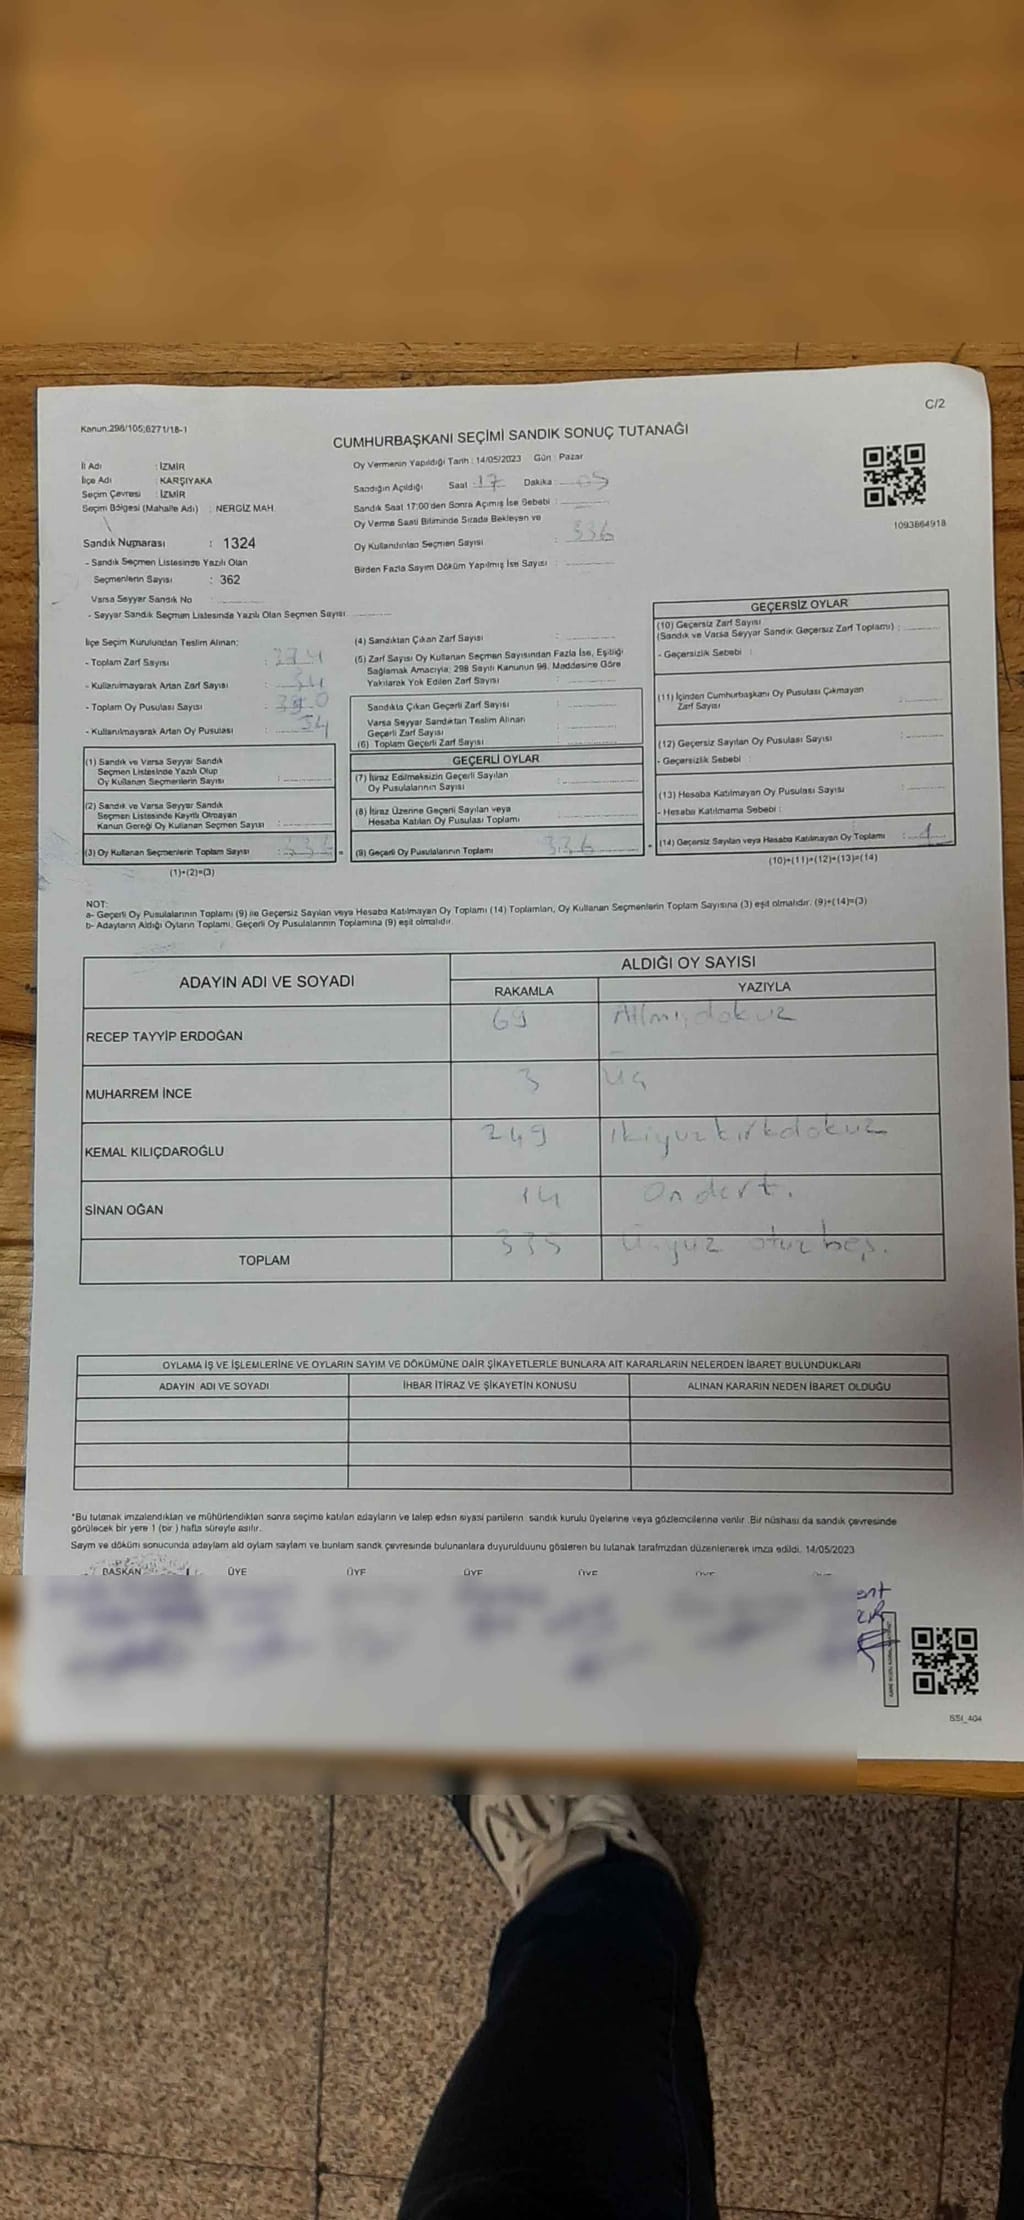 C/2
Kanun:298/105;6271/18-1
CUMHURBAŞKANI SEÇİMİ SANDIK SONUÇ TUTANAĞI
İl Adı : İZMİR
İlçe Adı : KARŞIYAKA
Seçim Çevresi : İZMİR
Seçim Bölgesi (Mahalle Adı) : NERGİZ MAH.
Sandık Numarası : 1324
- Sandık Seçmen Listesinde Yazılı Olan
Seçmenlerin Sayısı : 362
Varsa Seyyar Sandık No
- Seyyar Sandık Seçmen Listesinde Yazılı Olan Seçmen Sayısı
Oy Vermenin Yapıldığı Tarih : 14/05/2023 Gün : Pazar
Sandığın Açıldığı Saat 17 Dakika : 05
Sandık Saat 17:00'den Sonra Açmış İse Sebebi :
Oy Verme Saati Bitiminde Sırada Bekleyen ve
Oy Kullandırılan Seçmen Sayısı : 336
Birden Fazla Sayım Döküm Yapılmış İse Sayısı :
1093864918
İlçe Seçim Kurulundan Teslim Alınan:
- Toplam Zarf Sayısı :
- Kullanılmayarak Artan Zarf Sayısı : 34
- Toplam Oy Pusulası Sayısı :
- Kullanılmayarak Artan Oy Pusulası : 34
(1) Sandık ve Varsa Seyyar Sandık
Seçmen Listesinde Yazılı Olup
Oy Kullanan Seçmenlerin Sayısı :
(2) Sandık ve Varsa Seyyar Sandık
Seçmen Listesinde Kayıtlı Olmayan
Kanun Gereği Oy Kullanan Seçmen Sayısı :
(3) Oy Kullanan Seçmenlerin Toplam Sayısı :
(1)+(2)=(3)
(4) Sandıktan Çıkan Zarf Sayısı :
(5) Zarf Sayısı Oy Kullanan Seçmen Sayısından Fazla İse, Eşitliği
Sağlamak Amacıyla; 298 Sayılı Kanunun 98. Maddesine Göre
Yakılarak Yok Edilen Zarf Sayısı :
Sandıkta Çıkan Geçerli Zarf Sayısı :
Varsa Seyyar Sandıktan Teslim Alınan
Geçerli Zarf Sayısı :
(6) Toplam Geçerli Zarf Sayısı :
GEÇERLİ OYLAR
(7) İtiraz Edilmeksizin Geçerli Sayılan
Oy Pusulalarının Sayısı :
(8) İtiraz Üzerine Geçerli Sayılan veya
Hesaba Katılan Oy Pusulası Toplamı :
= (9) Geçerli Oy Pusulalarının Toplamı : 336
GEÇERSİZ OYLAR
(10) Geçersiz Zarf Sayısı
(Sandık ve Varsa Seyyar Sandık Geçersiz Zarf Toplamı) :
- Geçersizlik Sebebi :
(11) İçinden Cumhurbaşkanı Oy Pusulası Çıkmayan
Zarf Sayısı :
(12) Geçersiz Sayılan Oy Pusulası Sayısı :
- Geçersizlik Sebebi :
(13) Hesaba Katılmayan Oy Pusulası Sayısı :
- Hesaba Katılmama Sebebi :
+ (14) Geçersiz Sayılan veya Hesaba Katılmayan Oy Toplamı : 1
(10)+(11)+(12)+(13)=(14)
NOT:
a- Geçerli Oy Pusulalarının Toplamı (9) ile Geçersiz Sayılan veya Hesaba Katılmayan Oy Toplamı (14) Toplamları, Oy Kullanan Seçmenlerin Toplam Sayısına (3) eşit olmalıdır. (9)+(14)=(3)
b- Adayların Aldığı Oyların Toplamı, Geçerli Oy Pusulalarının Toplamına (9) eşit olmalıdır.
ADAYIN ADI VE SOYADI ALDIĞI OY SAYISI
RAKAMLA YAZIYLA
RECEP TAYYİP ERDOĞAN 69 Altmışdokuz
MUHARREM İNCE 3 Üç
KEMAL KILIÇDAROĞLU 249 İkiyuzkırkdokuz
SİNAN OĞAN 14 Ondört.
TOPLAM 335 Üçyüz otuzbeş.
OYLAMA İŞ VE İŞLEMLERİNE VE OYLARIN SAYIM VE DÖKÜMÜNE DAİR ŞİKAYETLERLE BUNLARA AİT KARARLARIN NELERDEN İBARET BULUNDUKLARI
ADAYIN ADI VE SOYADI İHBAR İTİRAZ VE ŞİKAYETİN KONUSU ALINAN KARARIN NEDEN İBARET OLDUĞU
*Bu tutanak imzalandıktan ve mühürlendikten sonra seçime katılan adayların ve talep eden siyasi partilerin sandık kurulu üyelerine veya gözlemcilerine verilir. Bir nüshası da sandık çevresinde
görülecek bir yere 1 (bir ) hafta süreyle asılır.
Saym ve döküm sonucunda adaylam ald oylam saylam ve bunlam sandk çevresinde bulunanlara duyurulduunu gösteren bu tutanak tarafmzdan düzenlenerek imza edildi. 14/05/2023
BAŞKAN ÜYE ÜYE ÜYE ÜYE
SSI_404